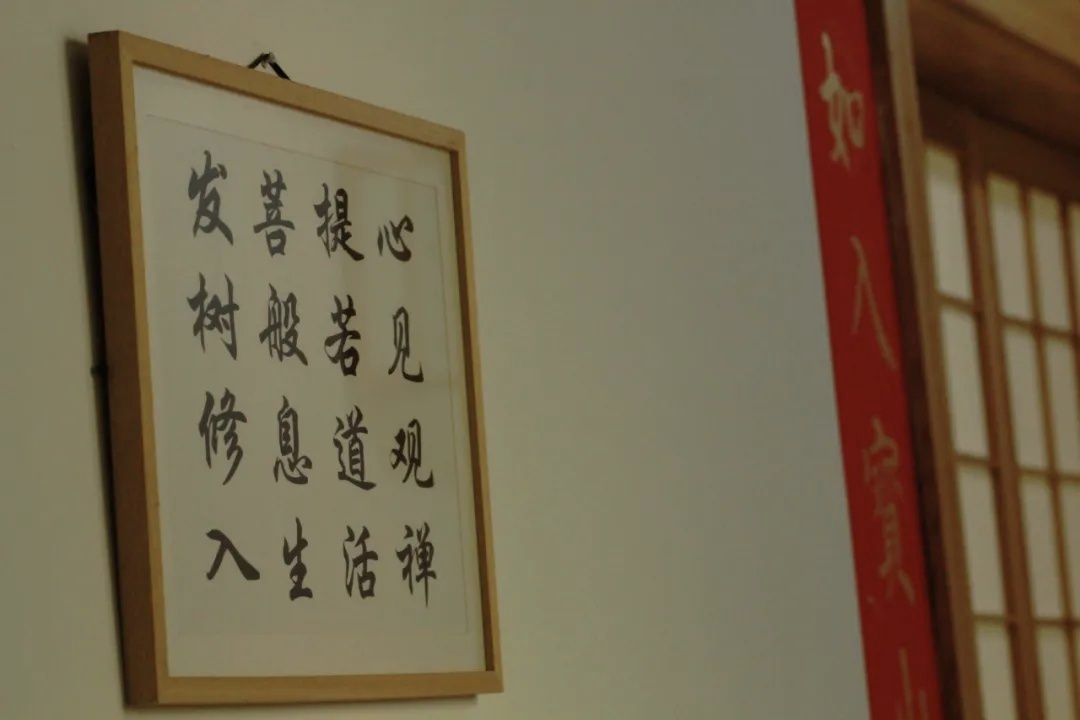 发菩提心
树般若见
修息道观
入生活禅
如入寳山